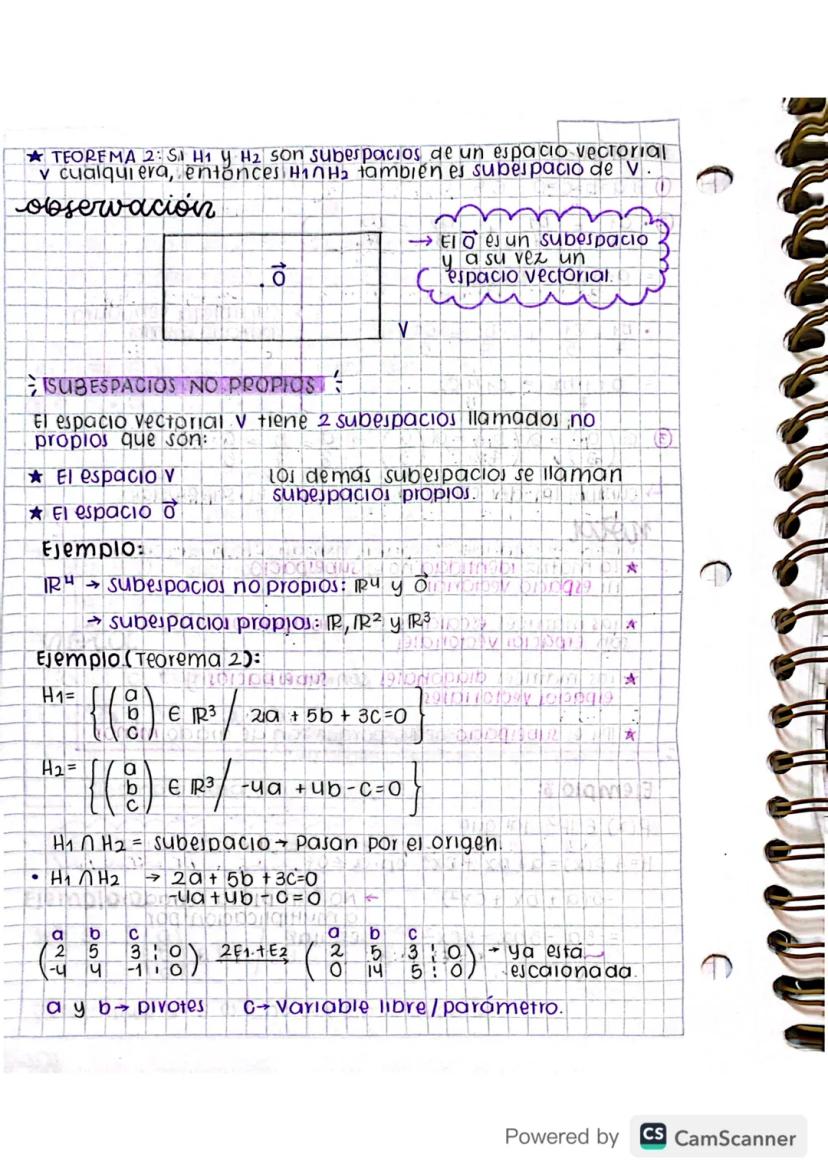 ★ TEOREMA 2: Si H1 y H2 son subespacios de un espacio vectorial
V cualquiera, entonces H1∩H2 también es subespacio de V.
observación
→ El 0⃗ es un subespacio
y a su vez un
espacio vectorial.
. 0⃗
V
SUBESPACIOS NO PROPIOS
El espacio vectorial V tiene 2 subespacios llamados no
propios que son:
★ El espacio V
Los demás subespacios se llaman
subespacios propios.
★ El espacio 0⃗
Ejemplo:
IR⁴ → subespacios no propios: IR⁴ y 0⃗
→ subespacios propios: IR, IR² y IR³
Ejemplo (Teorema 2):
H1= { (a b c) ∈ IR³ / 2a + 5b + 3c=0 }
H2= { (a b c) ∈ IR³ / -4a + 4b - c=0 }
H1 ∩ H2 = subespacio → Pasan por el origen.
• H1 ∩ H2 → 2a + 5b + 3c=0
-4a + 4b - c=0
a b c a b c
( 2 5 3 ¦ 0 ) 2E1 + E2 → ( 2 5 3 ¦ 0 ) → ya está
( -4 4 -1 ¦ 0 ) ( 0 14 5 ¦ 0 ) escalonada.
a y b → pivotes c → variable libre/parámetro.
Powered by CS CamScanner